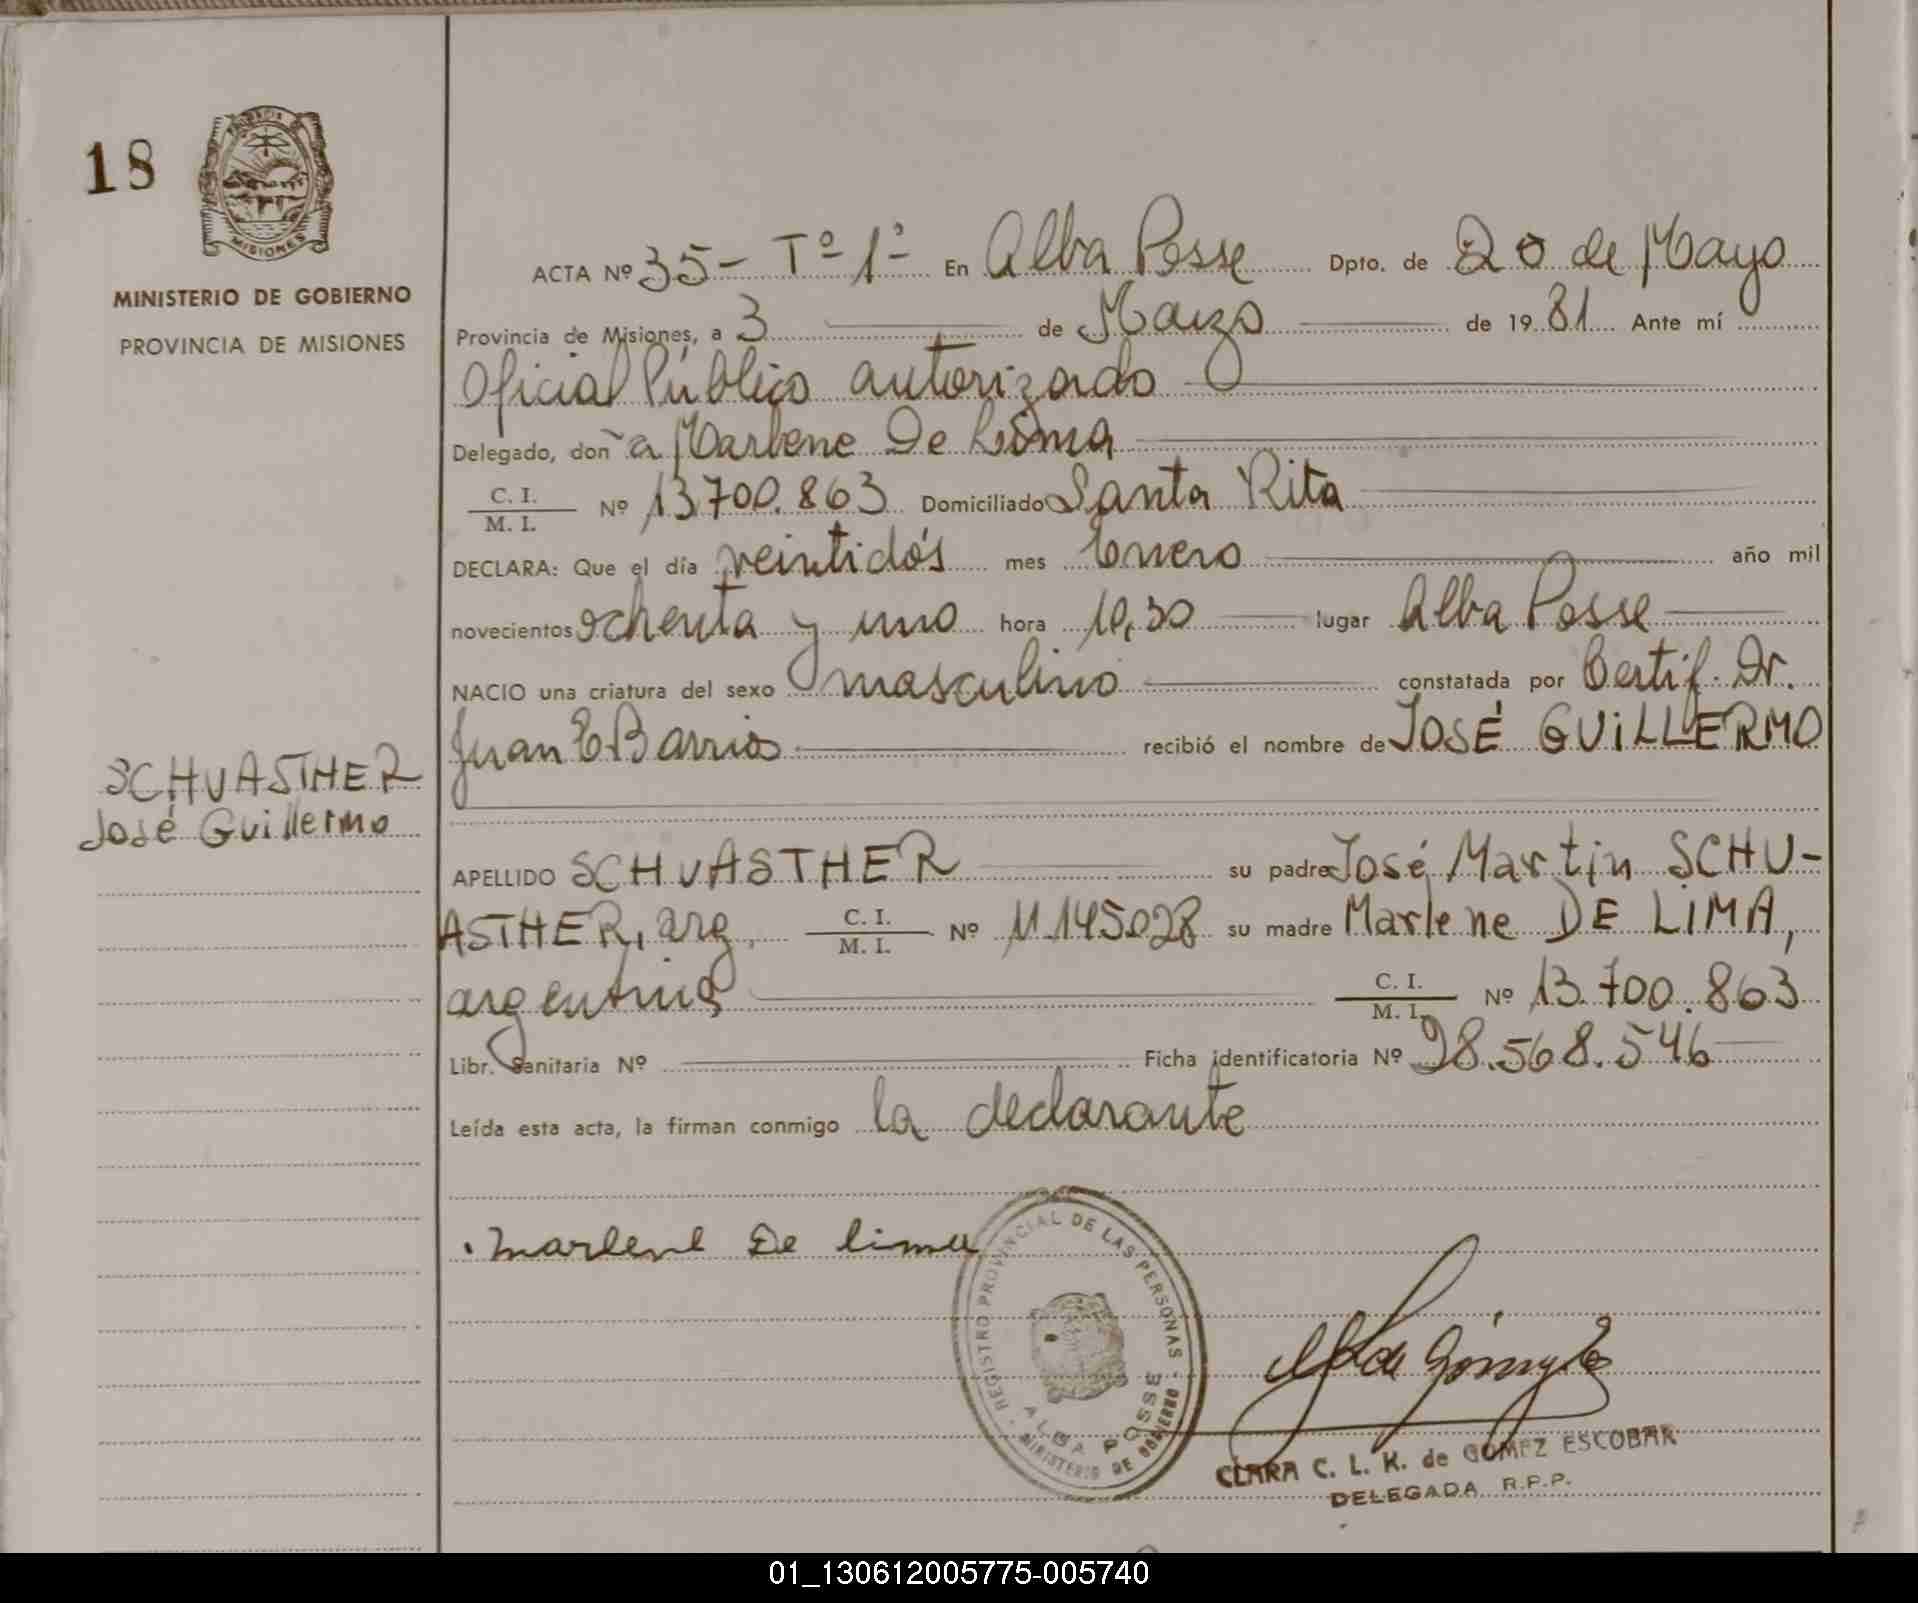 18
PROVINCIA DE
MISIONES
MINISTERIO DE GOBIERNO
PROVINCIA DE MISIONES
ACTA Nº 35- Tº 1º En Alba Posse Dpto. de 20 de Mayo
Provincia de Misiones, a 3 de Marzo de 1981 Ante mí
Oficial Público autorizado
Delegado, doña Marlene De Lima
C. I.
M. I. Nº 13.700.863 Domiciliado Santa Rita
DECLARA: Que el día veintidós mes Enero año mil
novecientos ochenta y uno hora 10,30 lugar Alba Posse
NACIO una criatura del sexo masculino constatada por Certif. Dr.
Juan E. Barrios recibió el nombre de JOSÉ GUILLERMO
SCHUASTHER
José Guillermo
APELLIDO SCHUASTHER su padre José Martin SCHU-
ASTHER, arg, C. I.
M. I. Nº 11.145.028 su madre Marlene DE LIMA,
argentina C. I.
M. I. Nº 13.700.863
Libr. Sanitaria Nº Ficha identificatoria Nº 28.568.546
Leída esta acta, la firman conmigo la declarante
Marlene De lima
REGISTRO PROVINCIAL DE LAS PERSONAS
ALBA POSSE
MINISTERIO DE GOBIERNO
CLARA C. L. K. de GOMEZ ESCOBAR
DELEGADA R.P.P.
01_130612005775-005740